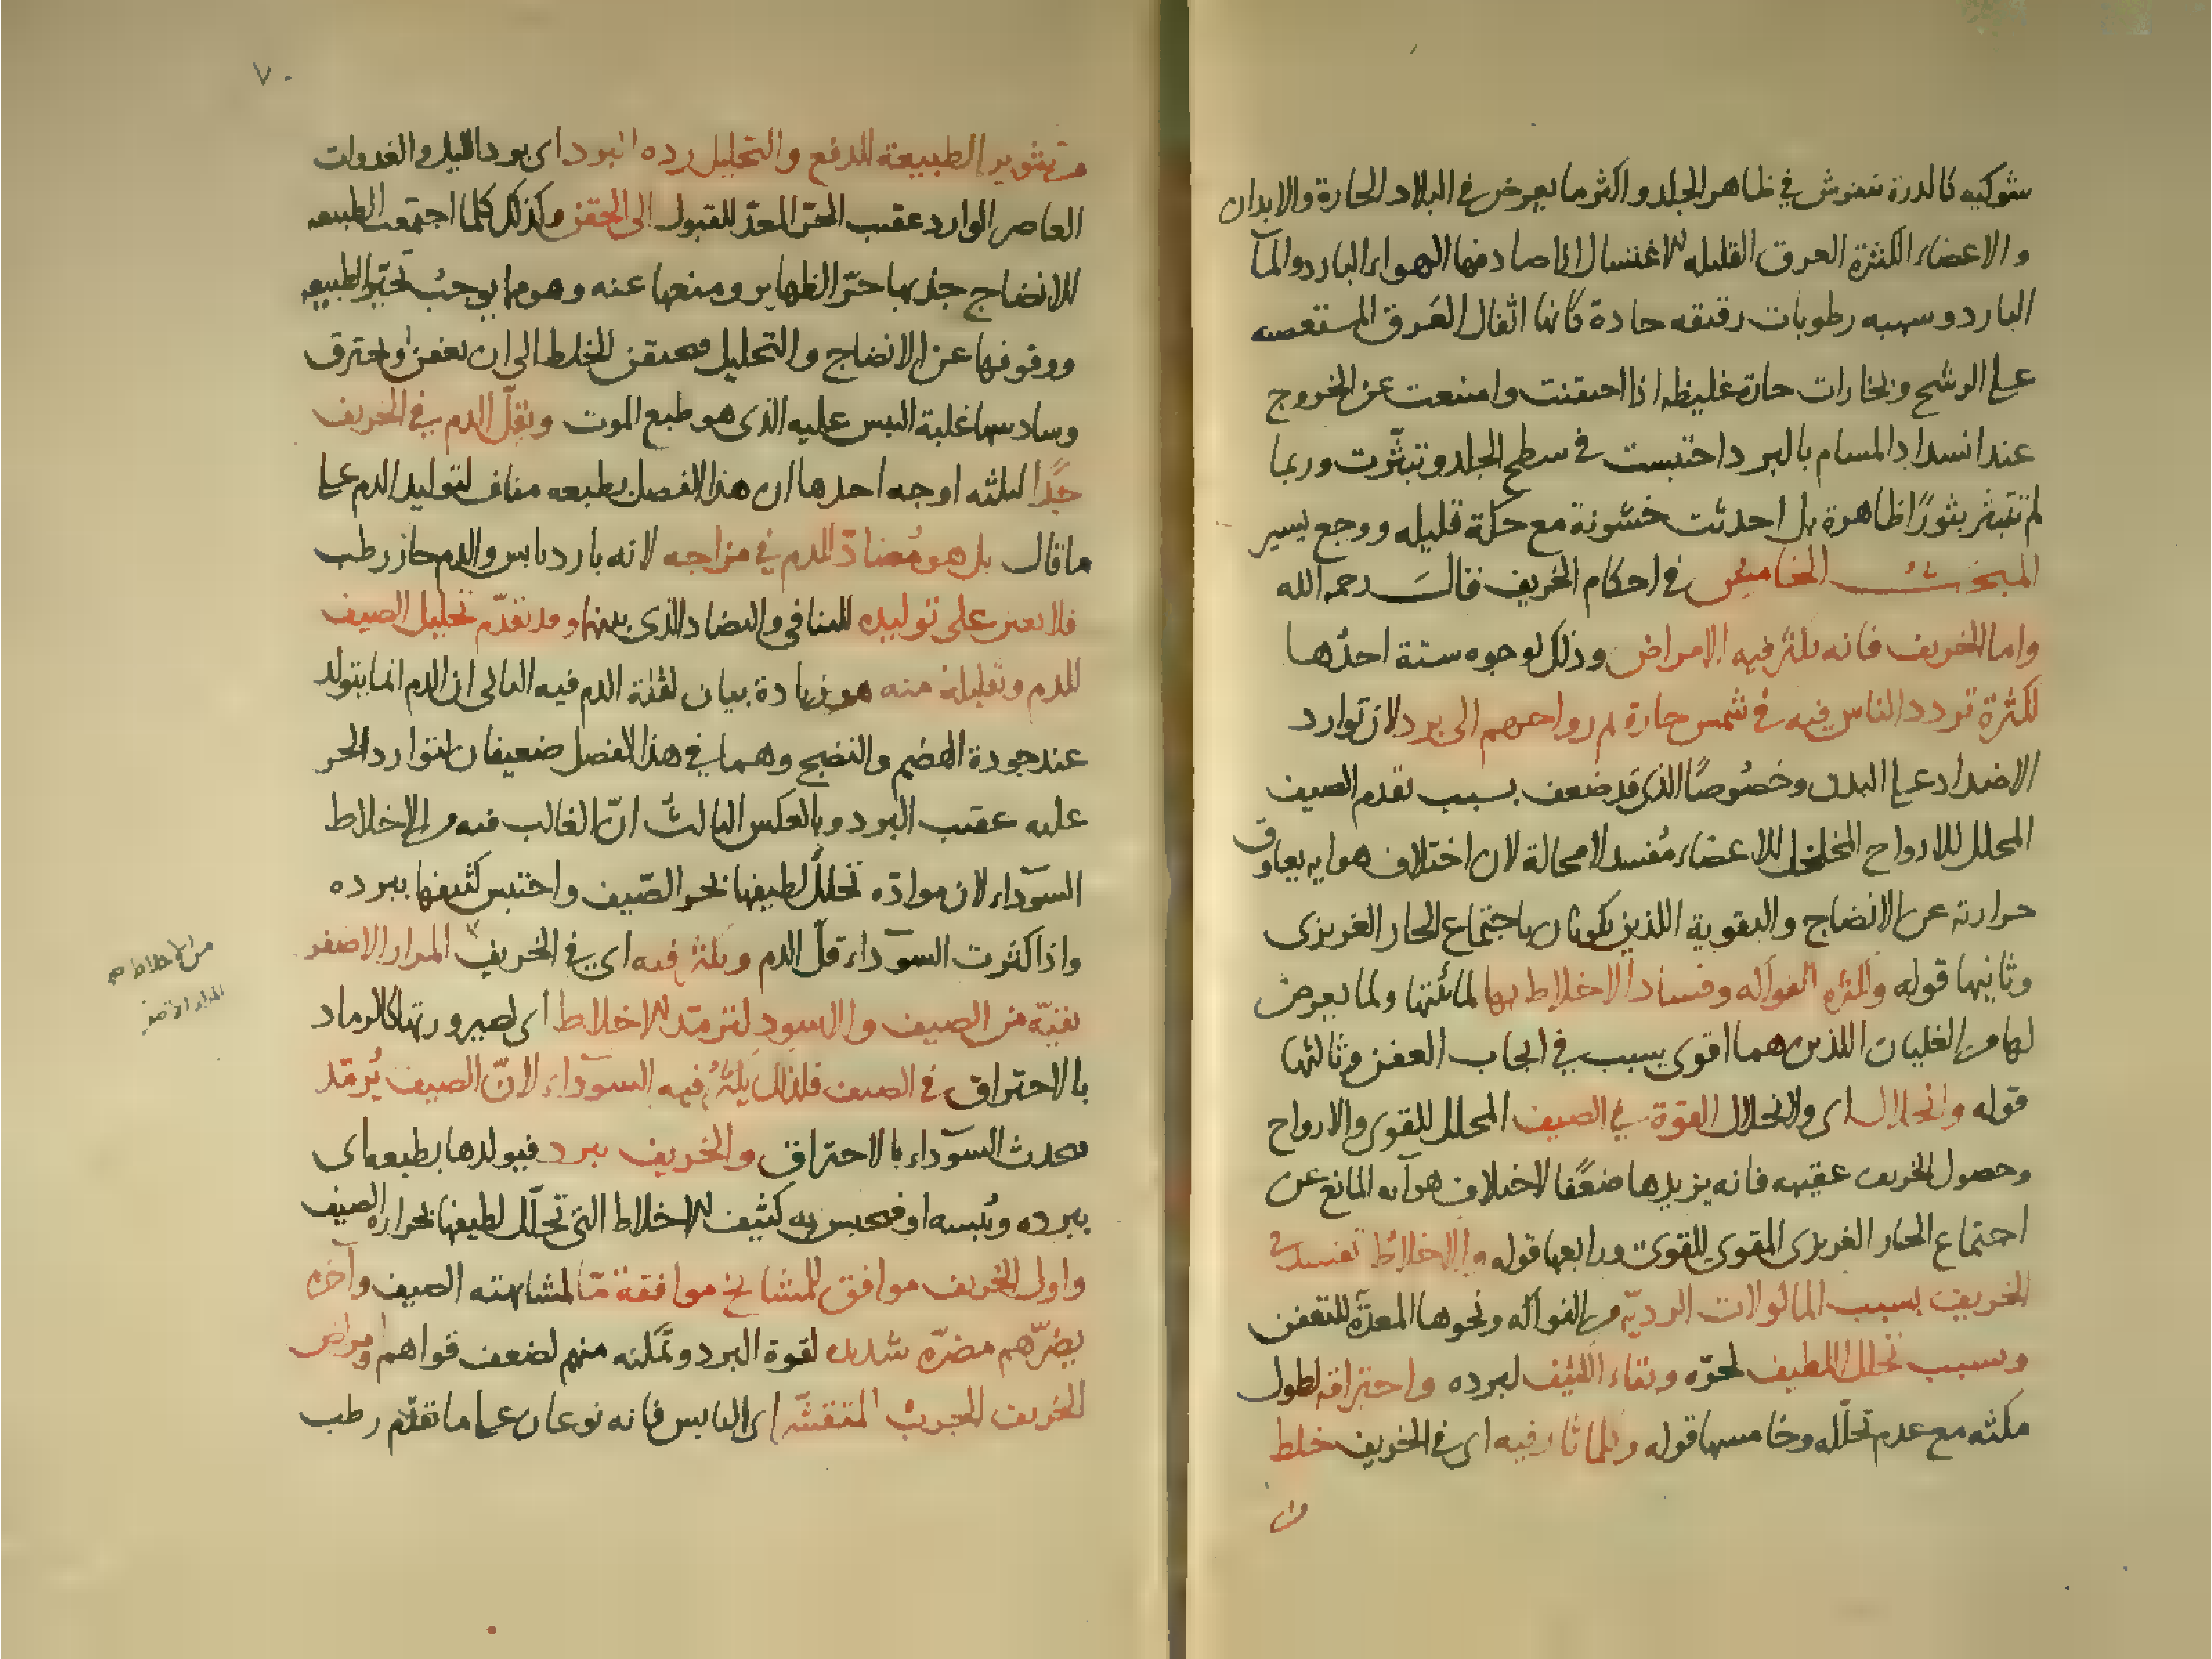 شوكيه كالدرة تنفرش في ظاهر الجلد واكثر ما يعرض في البلاد الحارة والابدان
والاعضاء الكثيرة العرق القليله الاغتسال اذا صادفها الهواء البارد والمآ
البارد وسببه رطوبات رقيقه حادة كانها اثقال العَرق المستعصيه
على الرشح وبخارات حادة غليظه اذا احتقنت وامتنعت عن الخروج
عند انسداد المسام بالبرد احتبست في سطح الجلد وتبثّرت وربما
لم تتبثر بثورًا ظاهرة بل احدثت خشونة مع حكة قليله ووجع يسير
المبحث الخامس في احكام الخريف قال رحمه الله
واما الخريف فانه يكثر فيه الامراض وذلك لوجوه ستة احدُها
لكثرة تردد الناس فيه في شمس حارة ثم رواحهم الى برد لان توارد
الاضداد على البدن وخصُوصًا الذي قد ضعف بسبب تقدم الصيف
المحلل للارواح المخلخل للاعضاء مُفسد لا محالة لان اختلاف هوايه يعاوق
حرارته عن الانضاج والتقوية اللذين يكونان باجتماع الحار الغريزى
وثانيها قوله ولكثره الفواكه وفساد الاخلاط بها لمائيتها ولما يعرض
لها من الغليان اللذين هما اقوى سبب في ايجاب العفن وثالثها
قوله وانحلال اى ولانحلال القوة في الصيف المحلل للقوى والارواح
وحصول الخريف عقيبه فانه يزيدها ضعفًا لاختلاف هوآيه المانع عن
اجتماع الحار الغريزى المقوى للقوى ورابعها قوله والاخلاط تفسد في
الخريف بسبب الماكولات الرديّه من الفواكه ونحوها المعدّة للتعفن
وبسبب تحلل اللطيف لحرّه وبقاء الكثيف لبرده واحتراقه لطول
مكثه مع عدم تحلّله وخامسها قوله وكلما ثار فيه اى في الخريف خلط
٧٠
من تثوير الطبيعة للدفع والتحليل رده البرد اى برد الليل والغدوات
العاصر الوارد عقيب الحرّ المعدّ للقبول الى الحقن وكذلك كلما اجتمعت الطبيعه
للانضاج جذبها حرّ الظهاير ومنعها عنه وهو مما يوجبُ تحيّر الطبيعه
ووقوفها عن الانضاج والتحليل فيحتقن الخلط الى ان يعفن او يحترق
وسادسها غلبة اليبس عليه الذى هو طبع الموت ويقلّ الدم في الخريف
جدًّا لثلثه اوجه احدها ان هذا الفصل بطبعه مناف لتوليد الدم على
ما قال بل هو مُضادّ للدم في مزاجه لانه بارد يابس والدم حار رطب
فلا يعين على توليده للتنافى والتضاد الذى بينهما وقد تقدّم تحليل الصيف
للدم وتقليله منه هو زيادة بيان لقلة الدم فيه الثانى ان الدم انما يتولد
عند جودة الهضم والنضج وهما في هذا الفصل ضعيفان لتوارد الحر
عليه عقيب البرد وبالعكس الثالث انّ الغالب فيه من الاخلاط
السوداء لان موادّه تحلّل لطيفها بحر الصّيف واحتبس كثيفها ببرده
واذا كثرت السوداء قلّ الدم ويكثر فيه اى في الخريف المرار الاصفر
بقيّه من الصيف والاسود لترمّد الاخلاط اى لصيرورتها كالرماد
بالاحتراق في الصيف فلذلك يكثرُ فيه السوداء لانّ الصيف يُرمّد
فيحدث السوداء بالاحتراق والخريف يبرد فيولدها بطبيعه اى
ببرده ويُبسه او فيحبس به كثيف الاخلاط التى تحلّل لطيفها بحرارة الصيف
واول الخريف موافق للمشايخ موافقة مّا لمشابهته الصيف وآخره
يضرّهم مضرّه شديده لقوة البرد وتمكّنه منهم لضعف قواهم وامراض
الخريف الجرب المتقشّر اى اليابس فانه نوعان على ما تقدّم رطب
من الاخلاط
المرار الاصفر